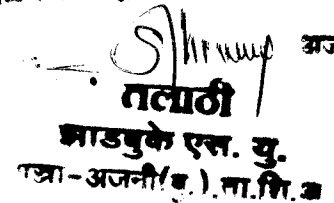 अज
तलाठी
झाडबुके एस. यु.
सज्जा-अजनी(बु.).ता.शि.अ